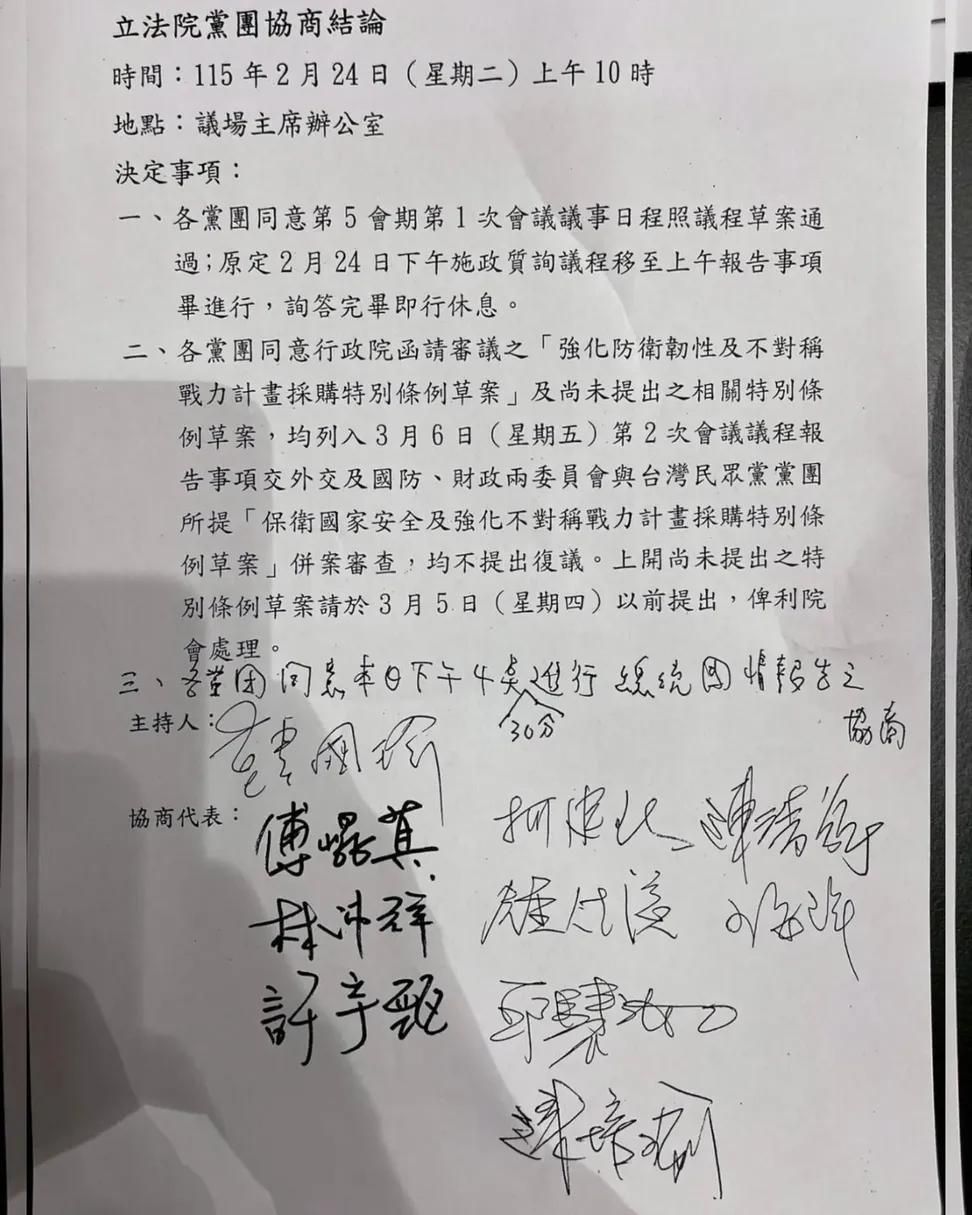 立法院黨團協商結論
時間：115年2月24日（星期二）上午10時
地點：議場主席辦公室
決定事項：
一、各黨團同意第5會期第1次會議議事日程照議程草案通
過；原定2月24日下午施政質詢議程移至上午報告事項
畢進行，詢答完畢即行休息。
二、各黨團同意行政院函請審議之「強化防衛韌性及不對稱
戰力計畫採購特別條例草案」及尚未提出之相關特別條
例草案，均列入3月6日（星期五）第2次會議議程報
告事項交外交及國防、財政兩委員會與台灣民眾黨黨團
所提「保衛國家安全及強化不對稱戰力計畫採購特別條
例草案」併案審查，均不提出復議。上開尚未提出之特
別條例草案請於3月5日（星期四）以前提出，俾利院
會處理。
三、各党团同意本日下午4点30分進行總統國情報告之
協商
主持人：韓國瑜
協商代表：
傅崐萁
柯建銘 陳清龍
林沛祥
鍾佳濱
許宇甄